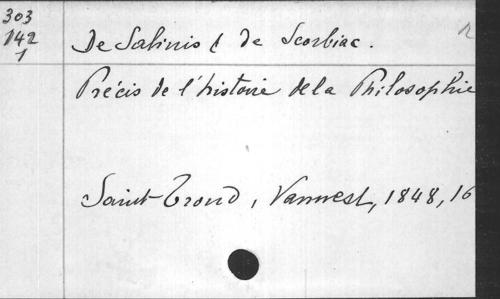 303
142
1
De Salinis & de Scorbiac.
Précis de l'histoire de la Philosophie
Saint-Trond, Vanwest, 1848, 16